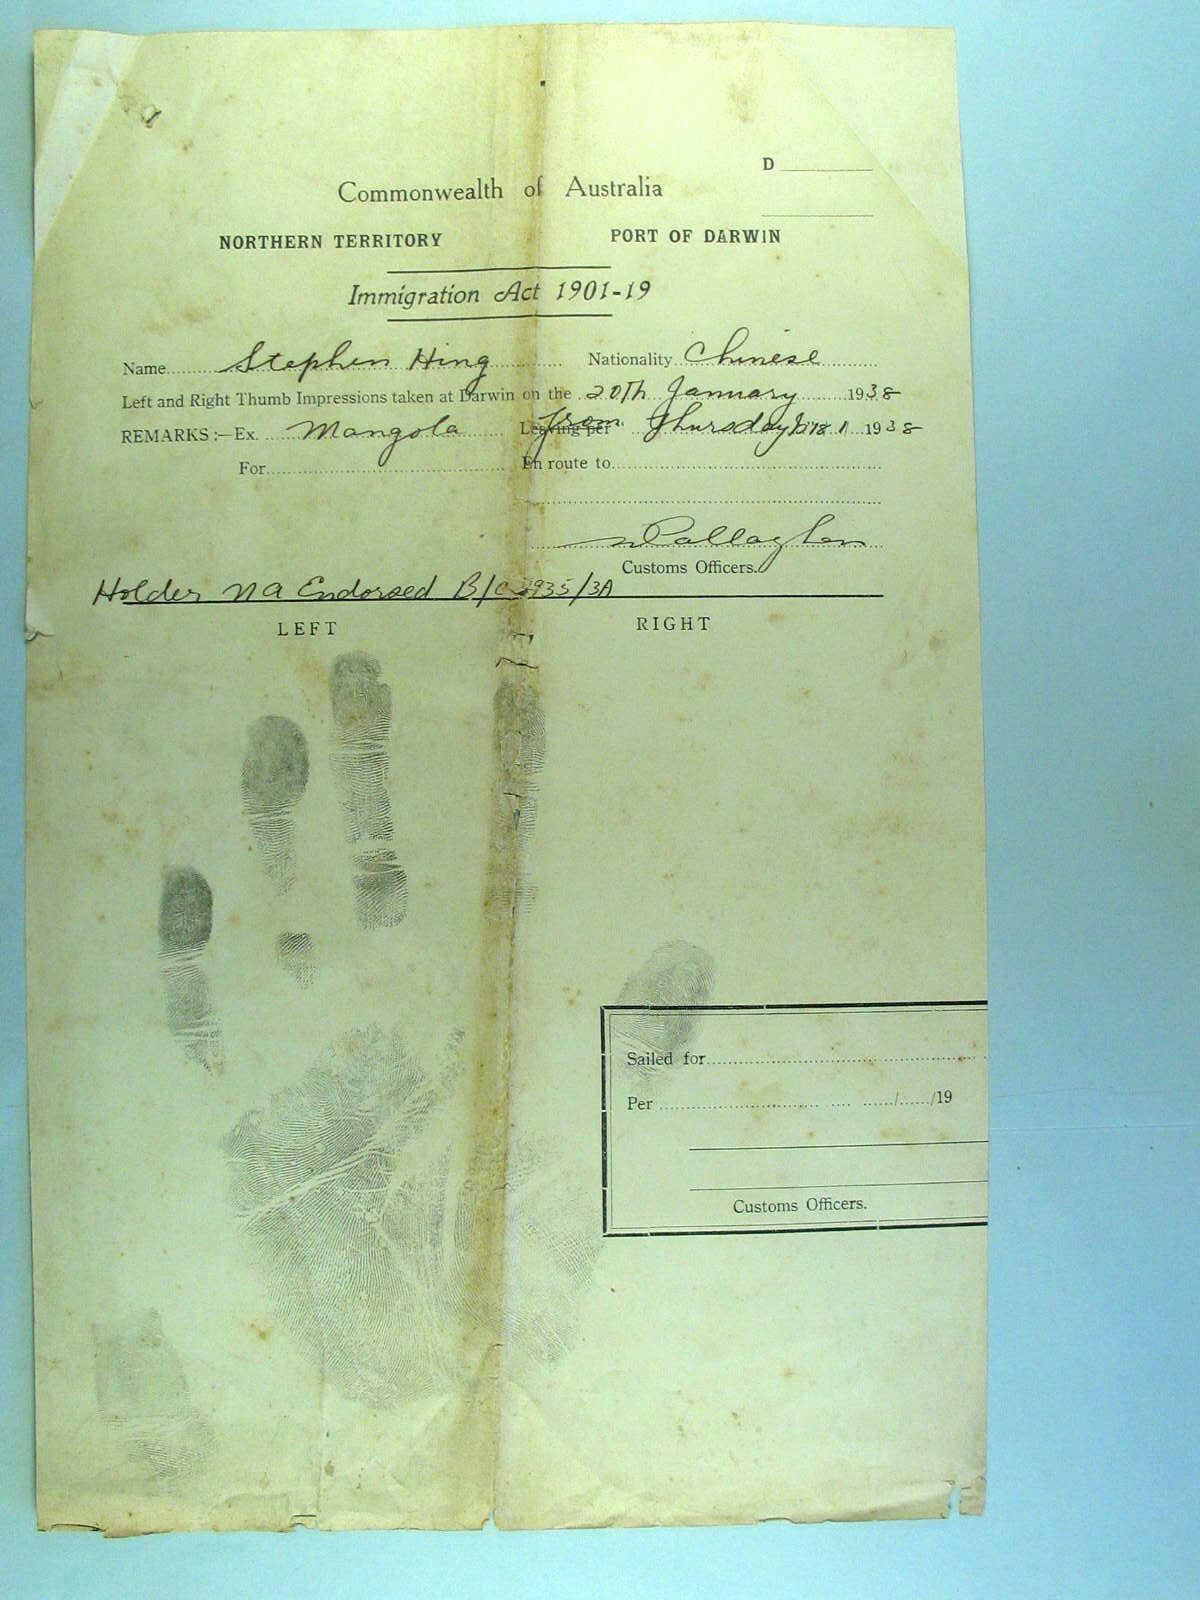 D
Commonwealth of Australia
NORTHERN TERRITORY PORT OF DARWIN
Immigration Act 1901-19
Name Stephen Hing Nationality Chinese
Left and Right Thumb Impressions taken at Darwin on the 20th January 1938
REMARKS :— Ex. Mangola Leaving per from Thursday 1938
For En route to
Customs Officers.
Holder NA Endorsed B/C 1935/3A
LEFT RIGHT
Sailed for
Per / /19
Customs Officers.